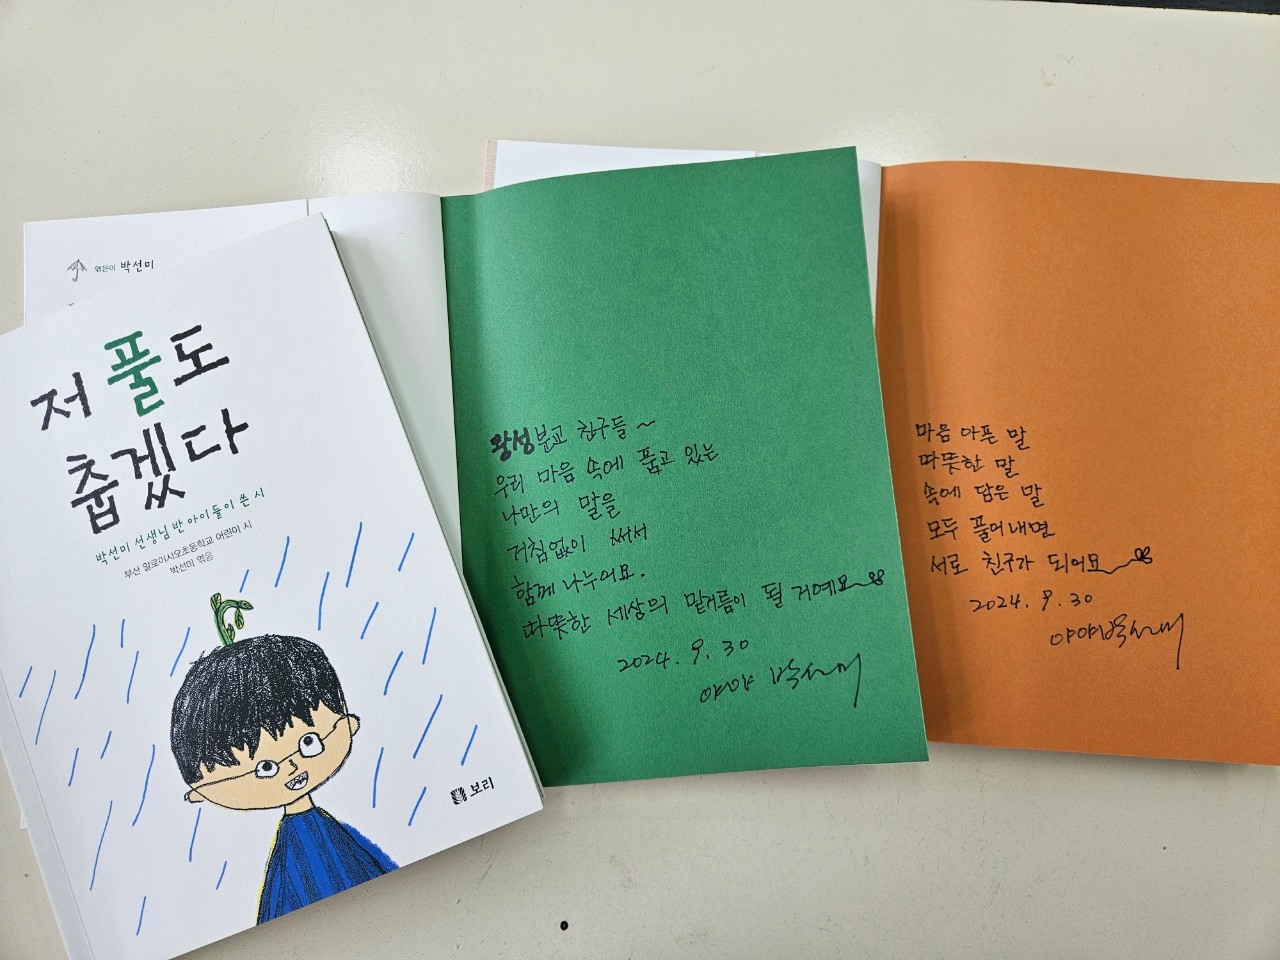 엮은이 박선미
저 풀도
춥겠다
박선미 선생님 반 아이들이 쓴 시
부산 알로이시오초등학교 어린이 시
박선미 엮음
보리
왕성분교 친구들~
우리 마음 속에 품고 있는
나만의 말을
거침없이 써서
함께 나누어요.
따뜻한 세상의 밑거름이 될 거예요
2024. 9. 30
야야 박선미
마음 아픈 말
따뜻한 말
속에 담은 말
모두 풀어내면
서로 친구가 되어요
2024. 9. 30
야야 박선미